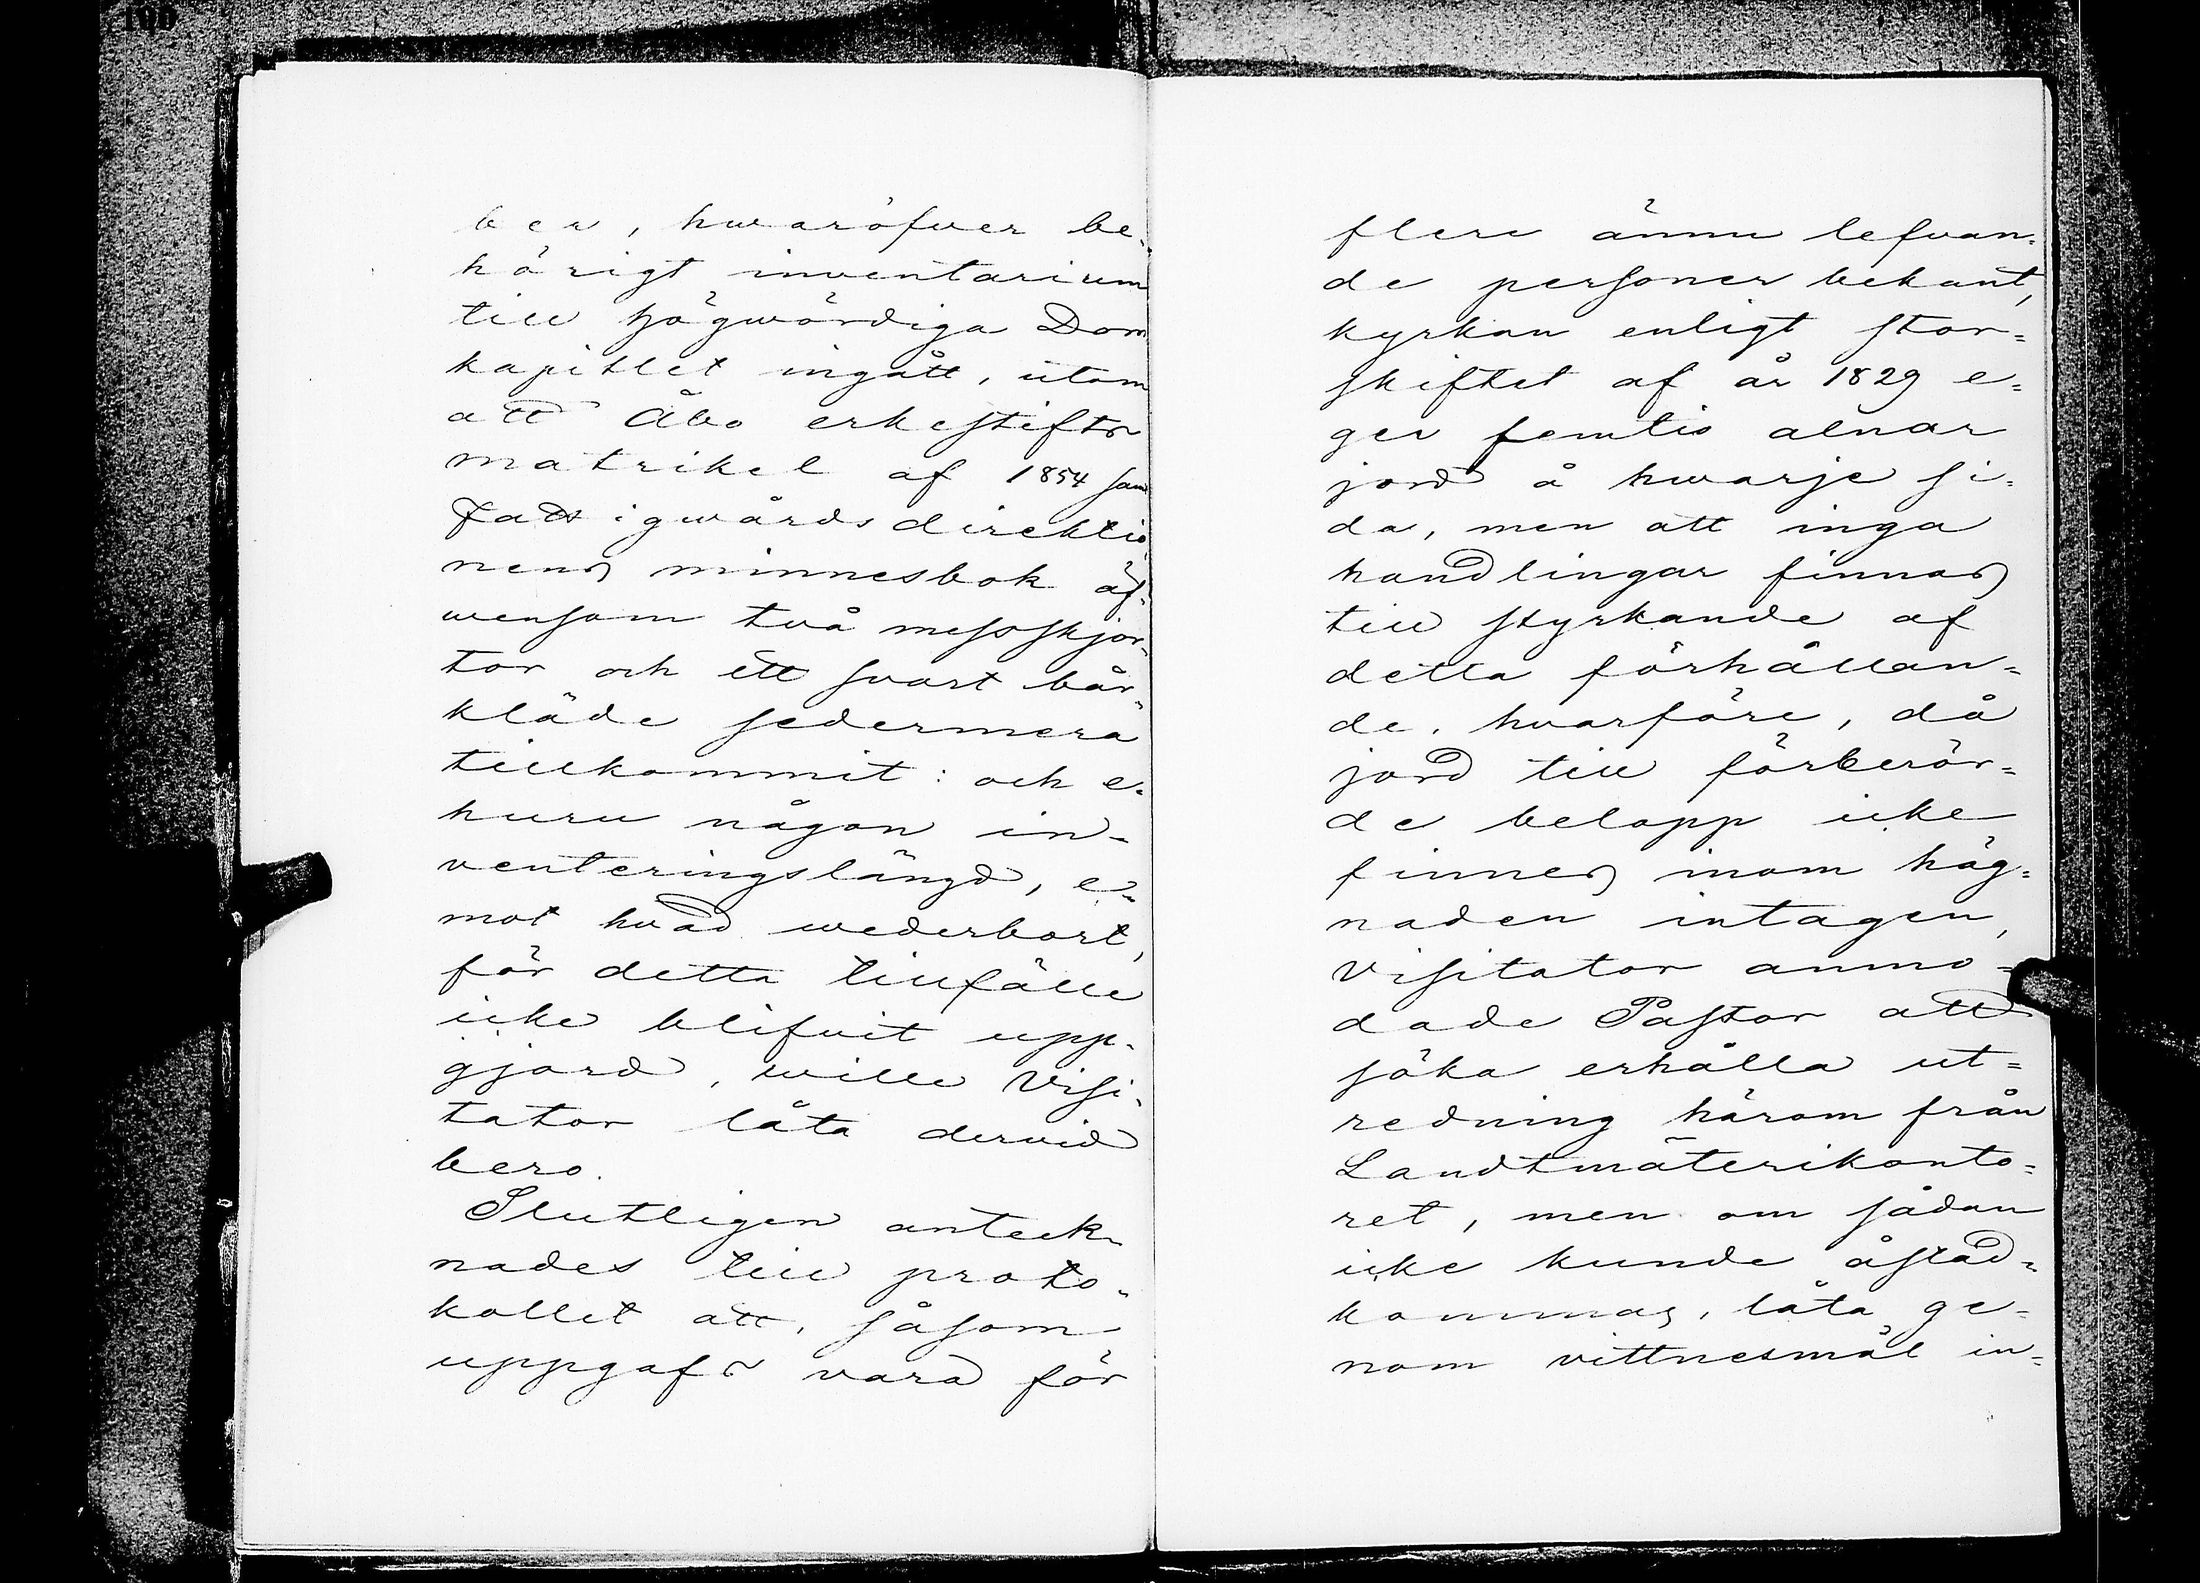 ber, hwaröfwer be-
hörigt inventarium
till högwördiga Dom
kapitlet ingått, utom
att Åbo erkestifts
matrikel af 1854 sam
Fattigwårds direktio
nens minnesbok äf-
wensom två messskjor-
tor och ett svart bår-
kläde sedermera
tillkommit: och e-
huru någon in-
venteringslängd, e-
mot hvad wederbort,
för detta tillfälle
icke blifvit upp-
gjord, wille Visi-
tator låta dervid
bero.
Slutligen anteck-
nades till proto-
kollet att, såsom
uppgafs vara för
flere ännu lefvan-
de personer bekant,
kyrkan enligt stor-
skiftet af år 1829 e-
ger femtio alnar
jord å hwarje si-
da, men att inga
handlingar finnas
till styrkande af
detta förhållan-
de, hvarföre, då
jord till förberör-
de belopp icke
finnes inom häg-
naden intagen,
Visitator anmo-
dade Pastor att
söka erhålla ut-
redning härom från
Landtmäterikonto-
ret, men om sådan
icke kunde åstad-
kommas, låta ge-
nom vittnesmål in-